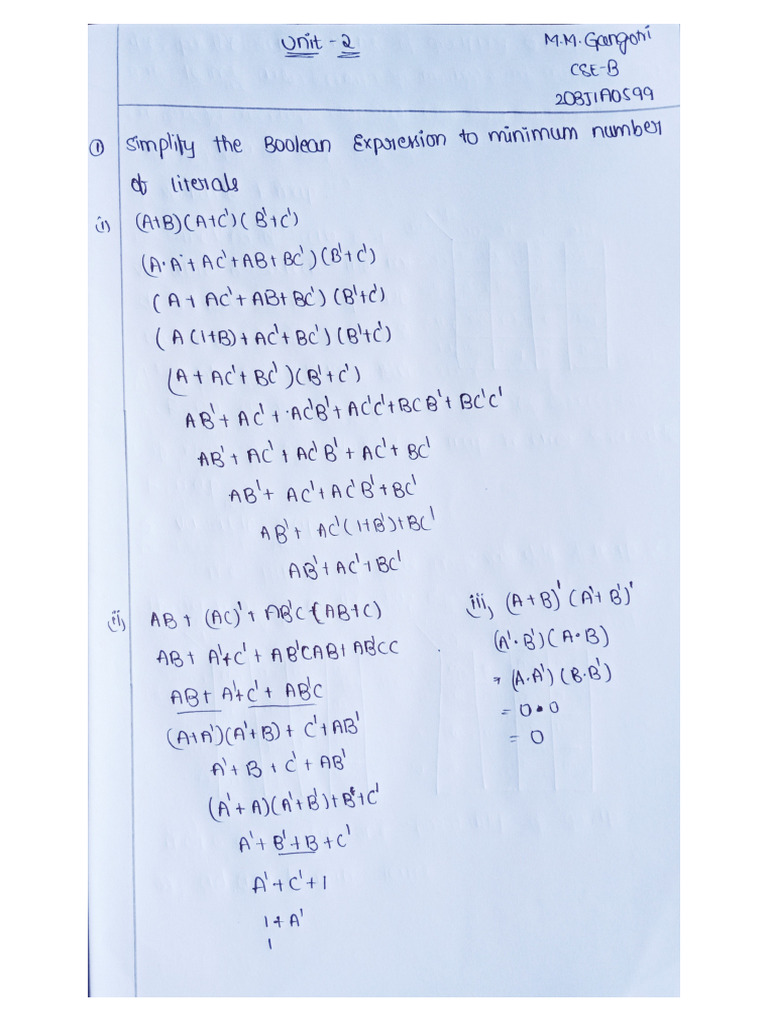 Unit - 2
M.M. Gangotri
CSE-B
20BJ1A0599
① Simplify the Boolean Expression to minimum number
of literals
(i) (A+B)(A+C')(B'+C')
(A·A + AC' + AB + BC')(B'+C')
(A + AC' + AB + BC')(B'+C')
(A(1+B) + AC' + BC')(B'+C')
(A + AC' + BC')(B'+C')
AB' + AC' + AC'B' + AC'C' + BCB' + BC'C'
AB' + AC' + AC'B' + AC' + BC'
AB' + AC' + AC'B' + BC'
AB' + AC'(1+B') + BC'
AB' + AC' + BC'
ii, AB + (AC)' + AB'C + (AB+C)
AB + A'+C' + AB'CAB + AB'CC
AB + A'+C' + AB'C
(A+A')(A'+B) + C' + AB'
A' + B + C' + AB'
(A'+A)(A'+B') + B + C'
A' + B' + B + C'
A' + C' + 1
1 + A'
1
iii, (A+B)' (A'+B')'
(A'·B')(A·B)
(A·A')(B·B')
= 0·0
= 0